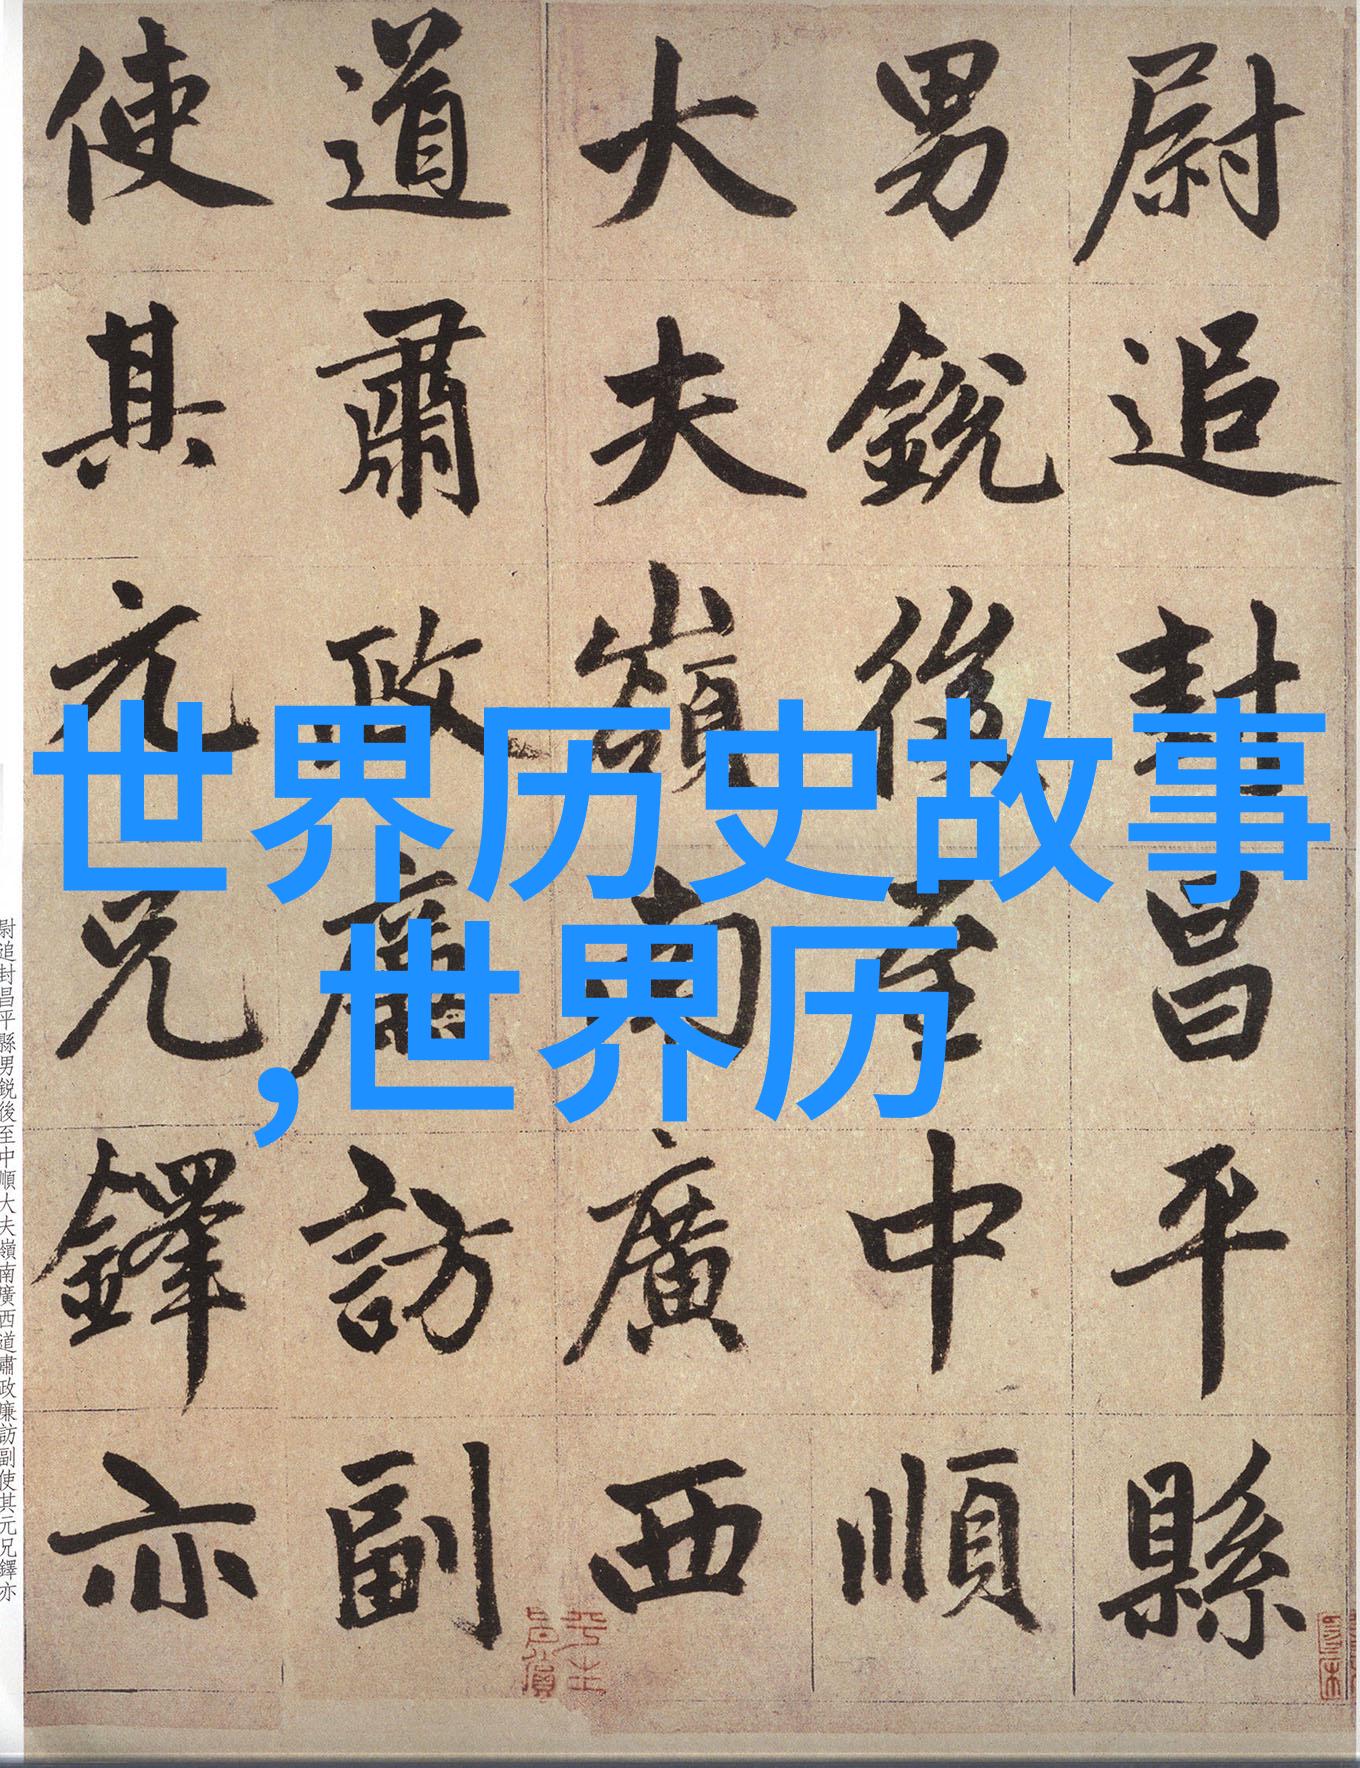 尉追封昌平縣
男銳後至中順
大夫嶺南廣西
道肅政廉訪副
使其元兄鐸亦
世界历史故事
,世界历
尉追封昌平縣男銳後至中順大夫嶺南廣西道肅政廉訪副使其元兄鐸亦